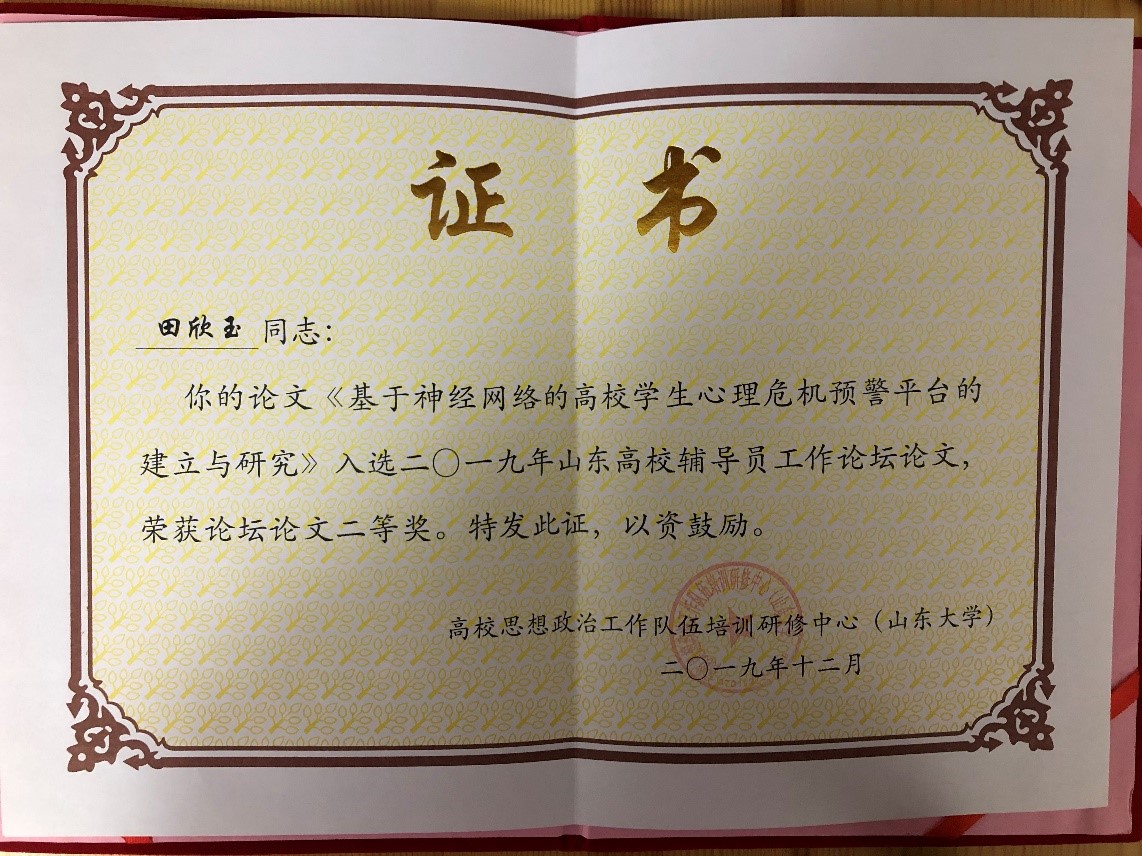 证 书
田欣玉 同志：
你的论文《基于神经网络的高校学生心理危机预警平台的
建立与研究》入选二〇一九年山东高校辅导员工作论坛论文，
荣获论坛论文二等奖。特发此证，以资鼓励。
高校思想政治工作队伍培训研修中心（山东大学）
二〇一九年十二月